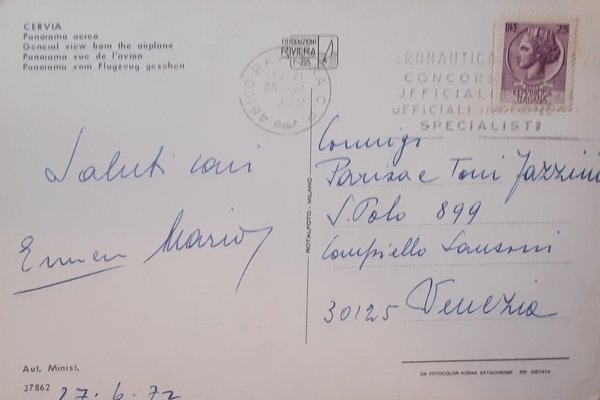 CERVIA
Panorama aereo
General view from the airplane
Panorama vue de l'avion
Panorama vom Flugzeug gesehen
FOTOEDIZIONI
RIVIERA
48100 RA
LIRE 25
REPUBBLICA ITALIANA
AERONAUTICA
CONCORS
UFFICIALI
UFFICIALI
SPECIALISTI
Saluti cari
Mario
Coniugi
Parisa e Toni Jazzini
S. Polo 899
Campiello Sansoni
30125 Venezia
ROTALFOTO - MILANO
Aut. Minist.
37862
27.6.72
DA FOTOCOLOR KODAK EKTACHROME - RIP. VIETATA